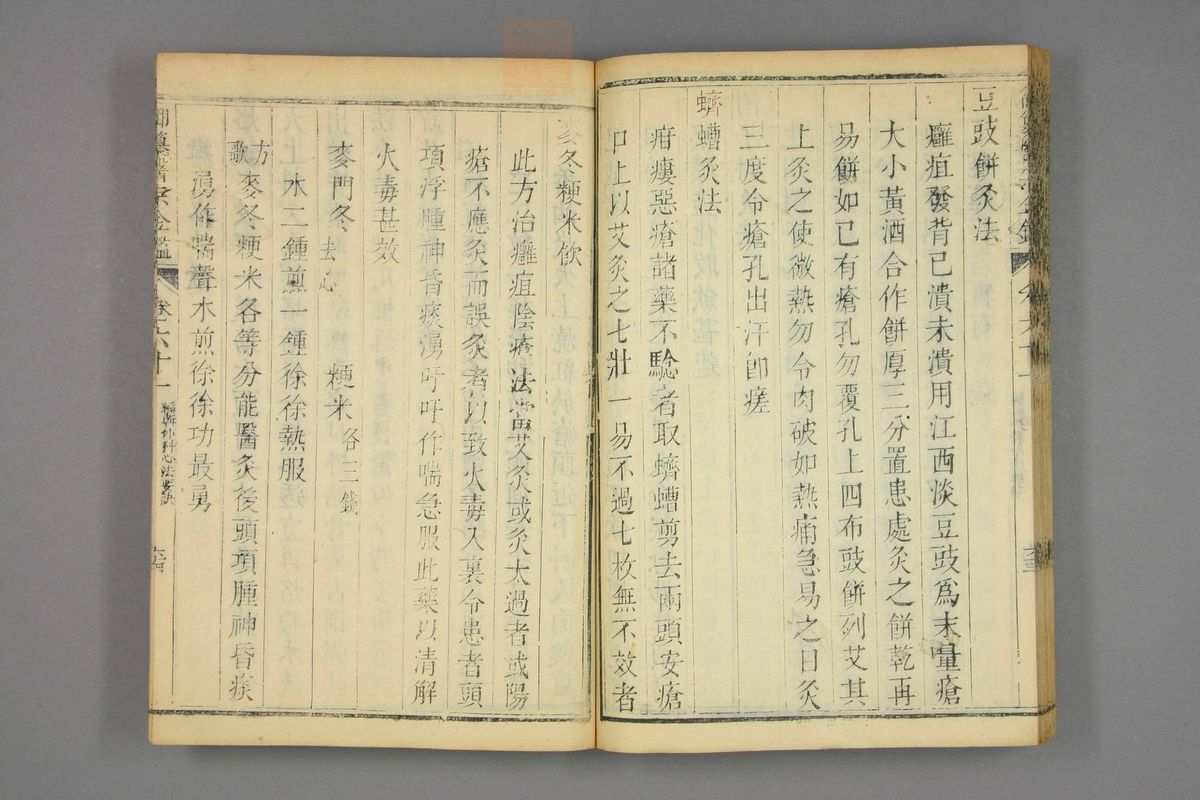 豆豉餅灸法
癰疽發背已潰未潰用江西淡豆豉爲末量瘡
大小黃酒合作餅厚三分置患處灸之餅乾再
易餅如已有瘡孔勿覆孔上四布豉餅列艾其
上灸之使微熱勿令肉破如熱痛急易之日灸
三度令瘡孔出汗卽瘥
蠐螬灸法
疳瘻惡瘡諸藥不騐者取蠐螬剪去兩頭安瘡
口上以艾灸之七壯一易不過七枚無不效者
麥冬粳米飲
此方治癰疽陰瘡法當艾灸或灸太過者或陽
瘡不應灸而誤灸者以致火毒入裏令患者頭
項浮腫神昏痰湧吁吁作喘急服此藥以清解
火毒甚效
麥門冬 去心 粳米 各三錢
水二鍾煎一鍾徐徐熱服
方歌 麥冬粳米各等分能醫灸後頭項腫神昏痰
湧作喘聲水煎徐徐功最勇
御纂醫宗金鑑 卷六十一 編輯外科心法要訣